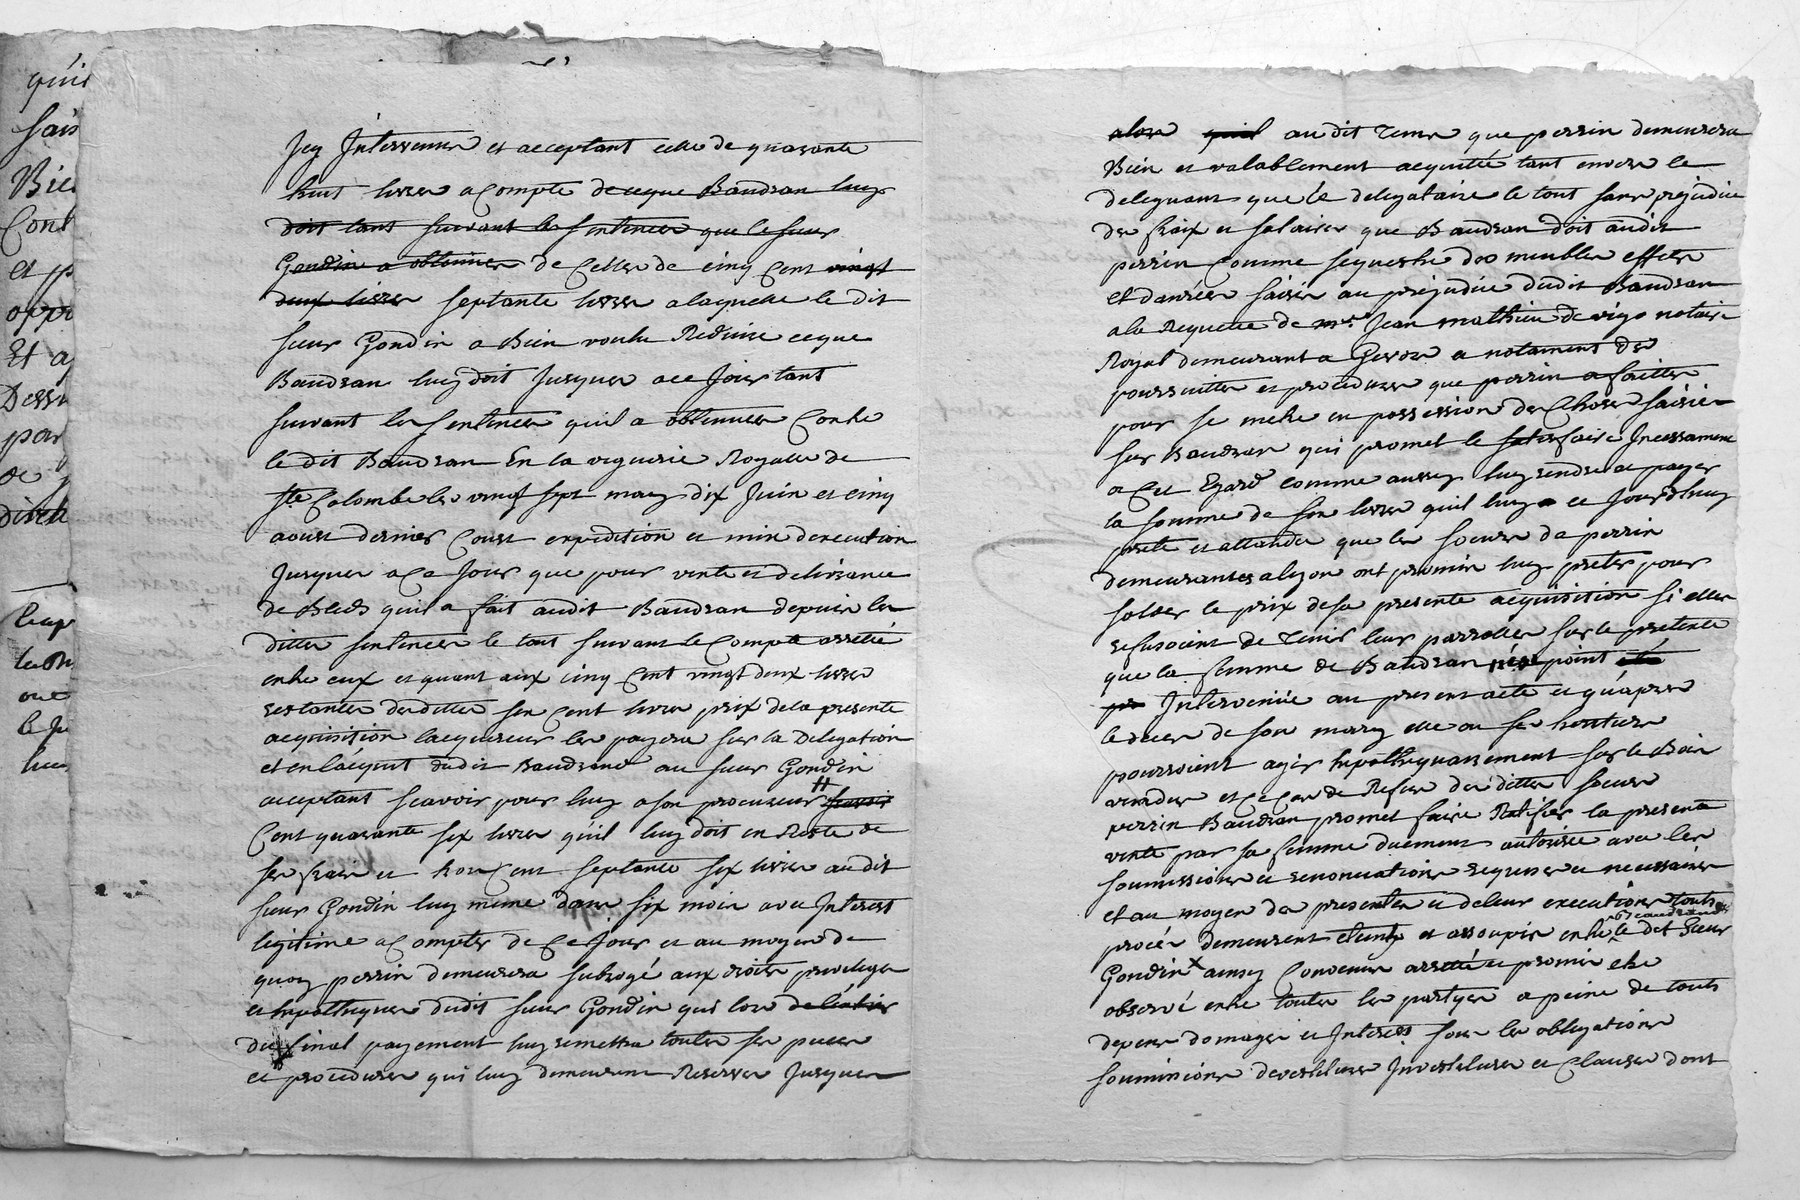 Icy Intervenu et acceptant celle de quarante
huit livres a Compte de ceque Baudran luy
doit tant suivant les sentences que le sieur
Gondin a obtenues de Celles de cinq Cent vingt
deux livres septante livres a laquelle le dit
sieur Gondin a Bien voulu Reduire ceque
Baudran luy doit Jusques a ce Jour tant
suivant les sentences quil a obtenues Contre
le dit Baudran En la viguerie Royalle de
Ste Colombe les vingt sept may dix Juin et cinq
aoust dernier Coust expedition et mise dexecution
Jusques a Ce Jour que pour vente et delivrance
de Bleds quil a fait audit Baudran depuis les
dittes sentences le tout suivant le Compte arretté
entre eux et quant aux cinq Cent vingt deux livres
restantes desdittes six Cent livres prix de la presente
acquisition lacquereur les payera sur la Delegation
et en lacquit dudit Baudrand au sieur Gondin
acceptant scavoir pour luy a son procureur scavoir
Cent quarante six livres quil luy doit en Reste de
ses frais et trois Cent septante six livres audit
sieur Gondin luy meme dans six mois avec Interest
legitime a Compter de Ce Jour et au moyen de
quoy perrin demeurera subrogé aux droits privileges
et hypotheques dudit sieur Gondin qui lors de
du final payement luy remettra touttes ses pieces
et procedures qui luy demeurent Reservés Jusques
alors quil audit tems que perrin demeurera
Bien et valablement acquitté tant envers le
deleguant que le delegataire le tout sans prejudice
des fraix et salaires que Baudran doit audit
perrin Comme sequestre des meubles effets
et danrées saisies au prejudice dudit Baudran
a la Requette de me Jean mathieu de vigo notaire
Royal demeurant a Givors a notament des
poursuittes et procedures que perrin a faittes
pour se metre en possession des Choses saisies
sur Baudran qui promet le satisfaire Incessament
a Cet Egard comme aussy luy rendre et payer
la somme de six livres quil luy a ce Jourdhuy
preté et attandu que les soeurs de perrin
demeurantes a lyon ont promis luy preter pour
solder le prix de sa presente acquisition si elles
refusoient de Tenir leur parrolles sur le pretexte
que la femme de Baudran point été
pas Intervenüe au present acte et qu'apres
le deces de son mary elle ou ses heritiers
pourroient agir hypothequairement sur le Bois
vendus et Ce Cas de Refus des dittes soeurs
perrin Baudran promet faire Ratifier la presente
vente par sa femme duement autorisée avec les
soumissions et renonciations requises et necessaires
et au moyen des presentes et de leur execution touts
procés demeurent eteints et assoupis entre le dit Sieur
Gondin ainsy Convenu arretté et promis etre
observé entre touttes les partyes a peine de touts
depens domages et Interets sous les obligations
soumissions devestitures Investitures et Clauses dont